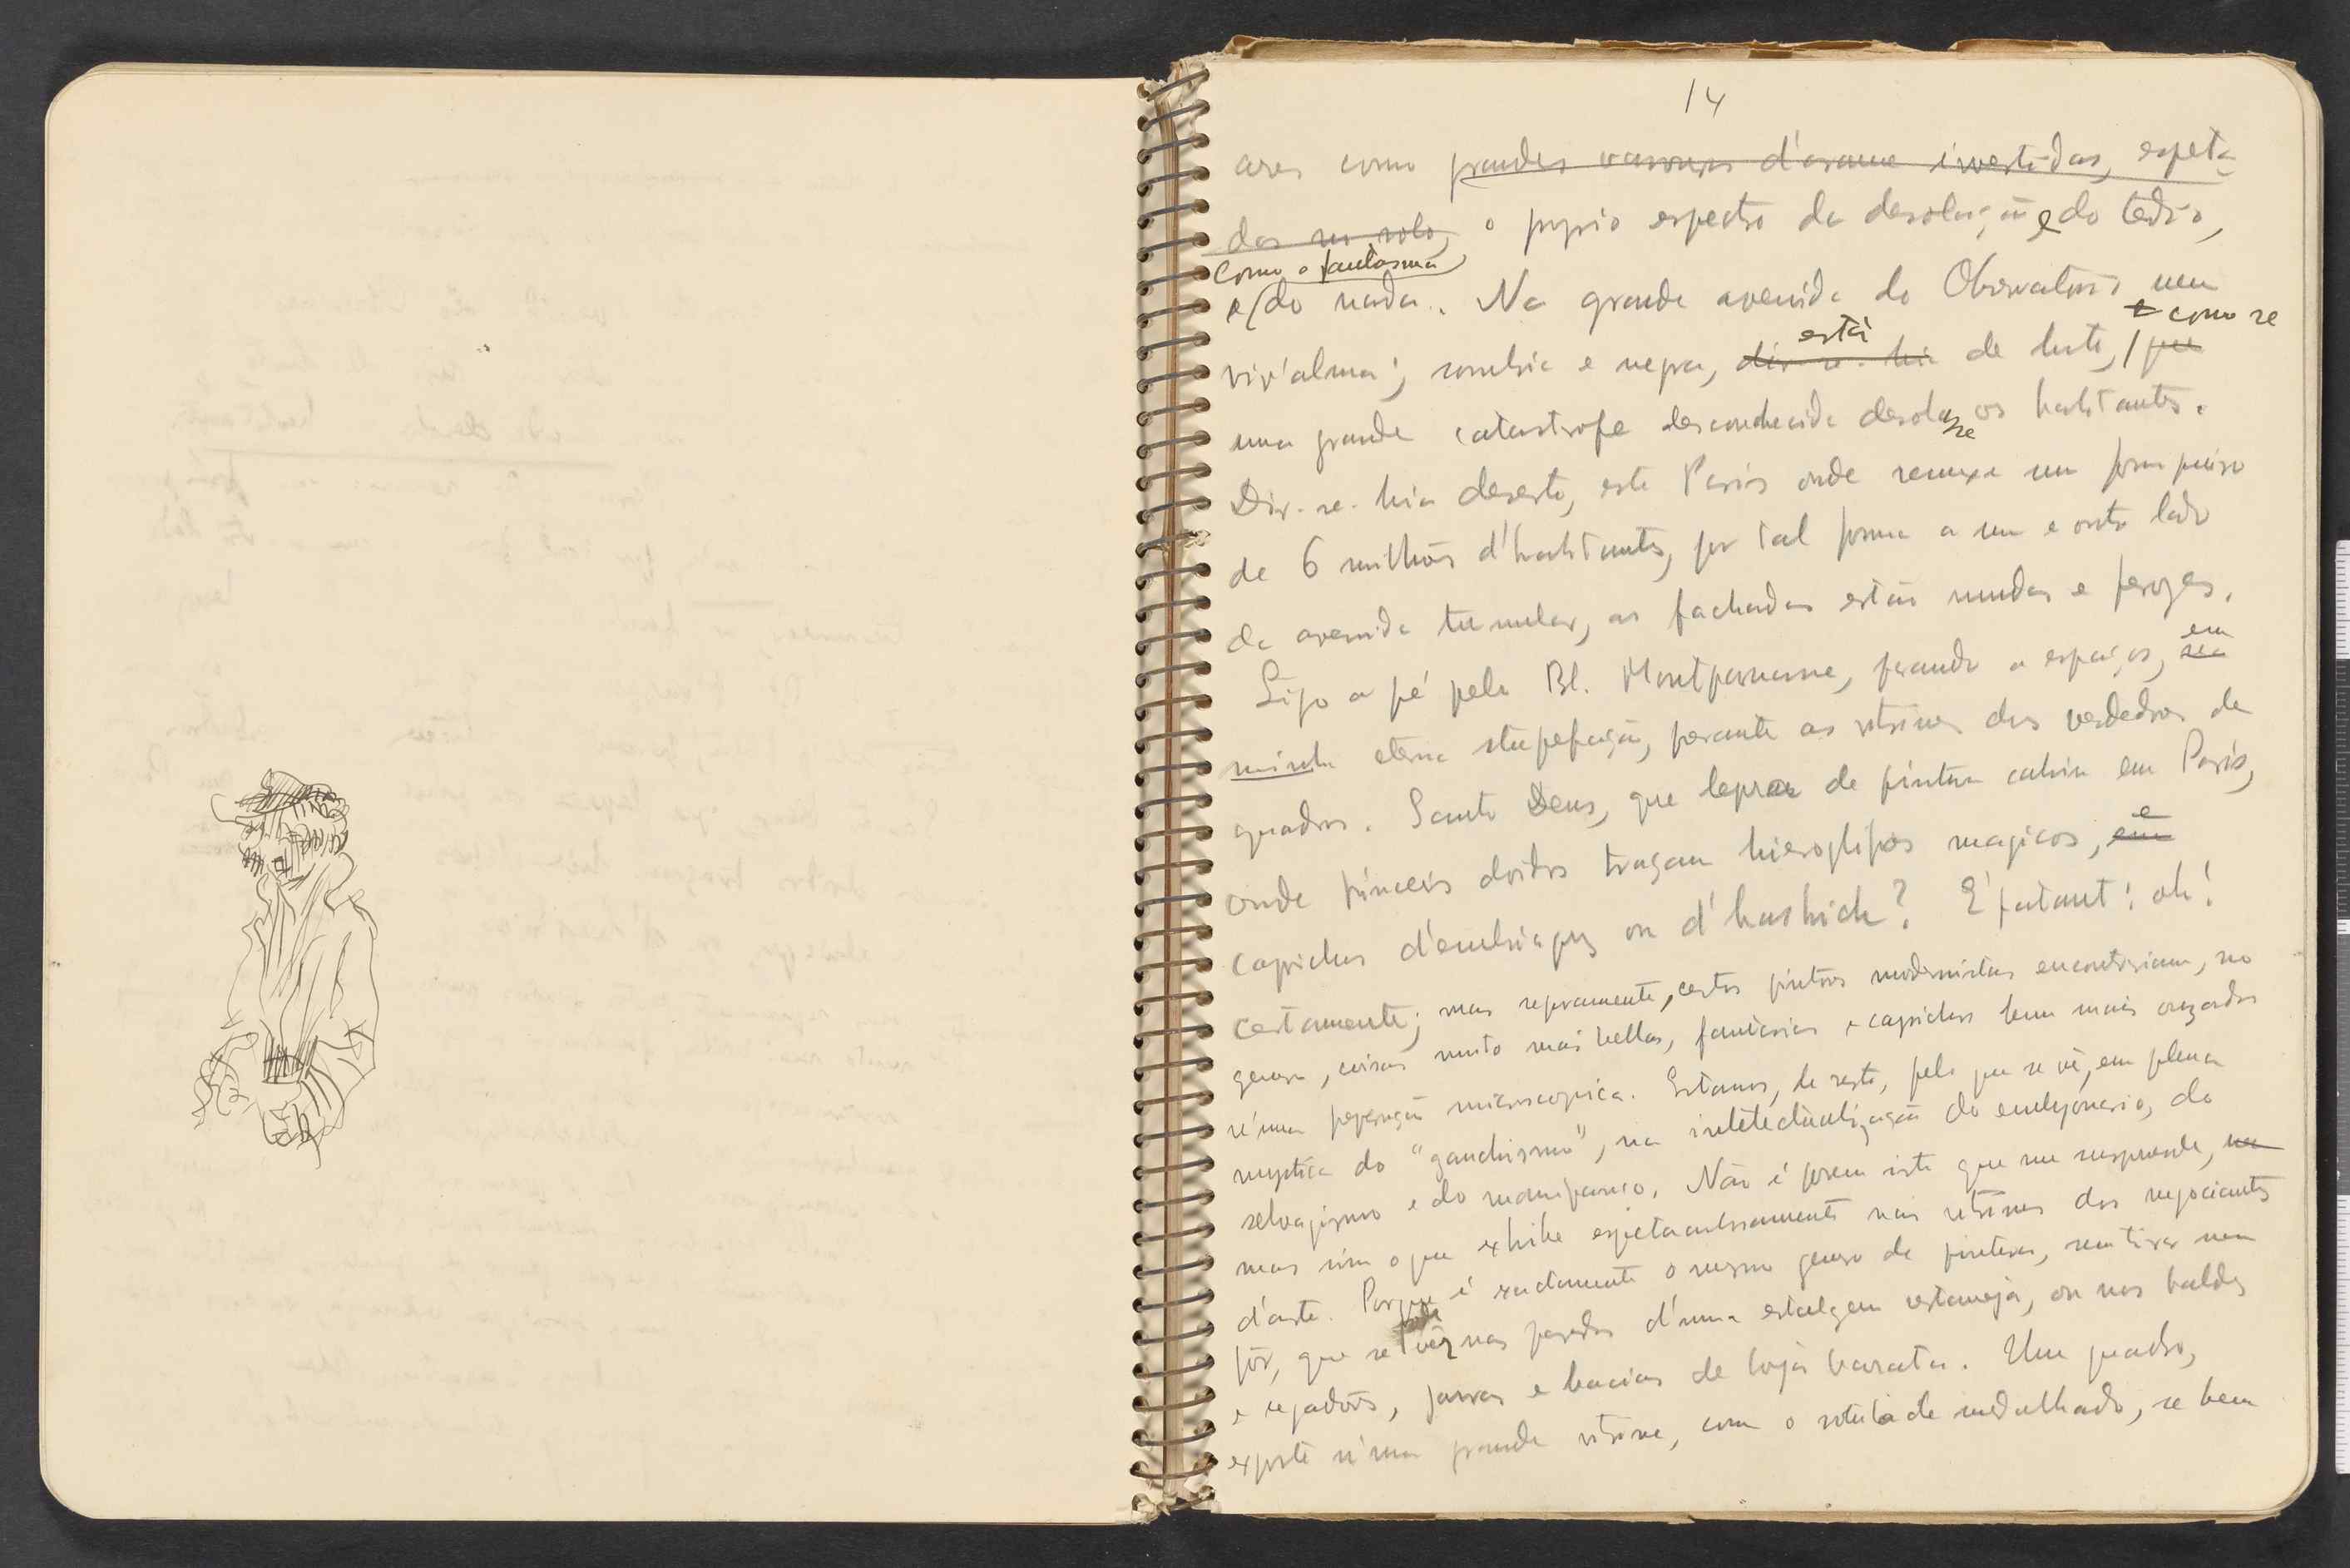 14
ares como grandes vassouras d'arame invertidas, espeta-
das no solo, o proprio espectro da desolação e do tedio,
como o fantasma
e do nada. Na grande avenida do Observatorio nem
está
como se
viv'alma; sombria e negra, dir-se-hia de luto, que
uma grande catastrofe desconhecida desolasse os habitantes.
Dir-se-hia deserto, este Paris onde remexe um formigueiro
de 6 milhões d'habitantes, por tal forma a um e outro lado
da avenida tumular, as fachadas estão mudas e ferozes.
em
Sigo a pé pelo Bl. Montparnasse, parando a espaços, na
minha eterna stupefação, perante as vitrines dos vendedores de
quadros. Santo Deus, que lepra de pintura cahiu em Paris,
e
onde pinceis doidos traçam hieroglifos magicos, em
caprichos d'embriaguez ou d'hashich? E'patant! oh!
certamente; mas seguramente, certos pintores modernistas encontrariam, no
genero, coisas muito mais bellas, fantasias e caprichos bem mais ousados
n'uma preparação microscopica. Estamos, de resto, pelo que se vê, em plena
mystica do "gauchismo", na intelectualização do embryonario, do
selvagismo e do manipanso. Não é porem isto que me surprende,
mas sim o que exhibe espetaculosamente nas vitrines dos negociantes
d'arte. Porque é exactamente o mesmo genero de pintura, sem tirar nem
pôr, que se vê nas paredes d'uma estalagem sertaneja, ou nos baldes
e regadores, jarras e bacias de loja barata. Um quadro,
exposto n'uma grande vitrine, com o rotulo de medalhado, se bem